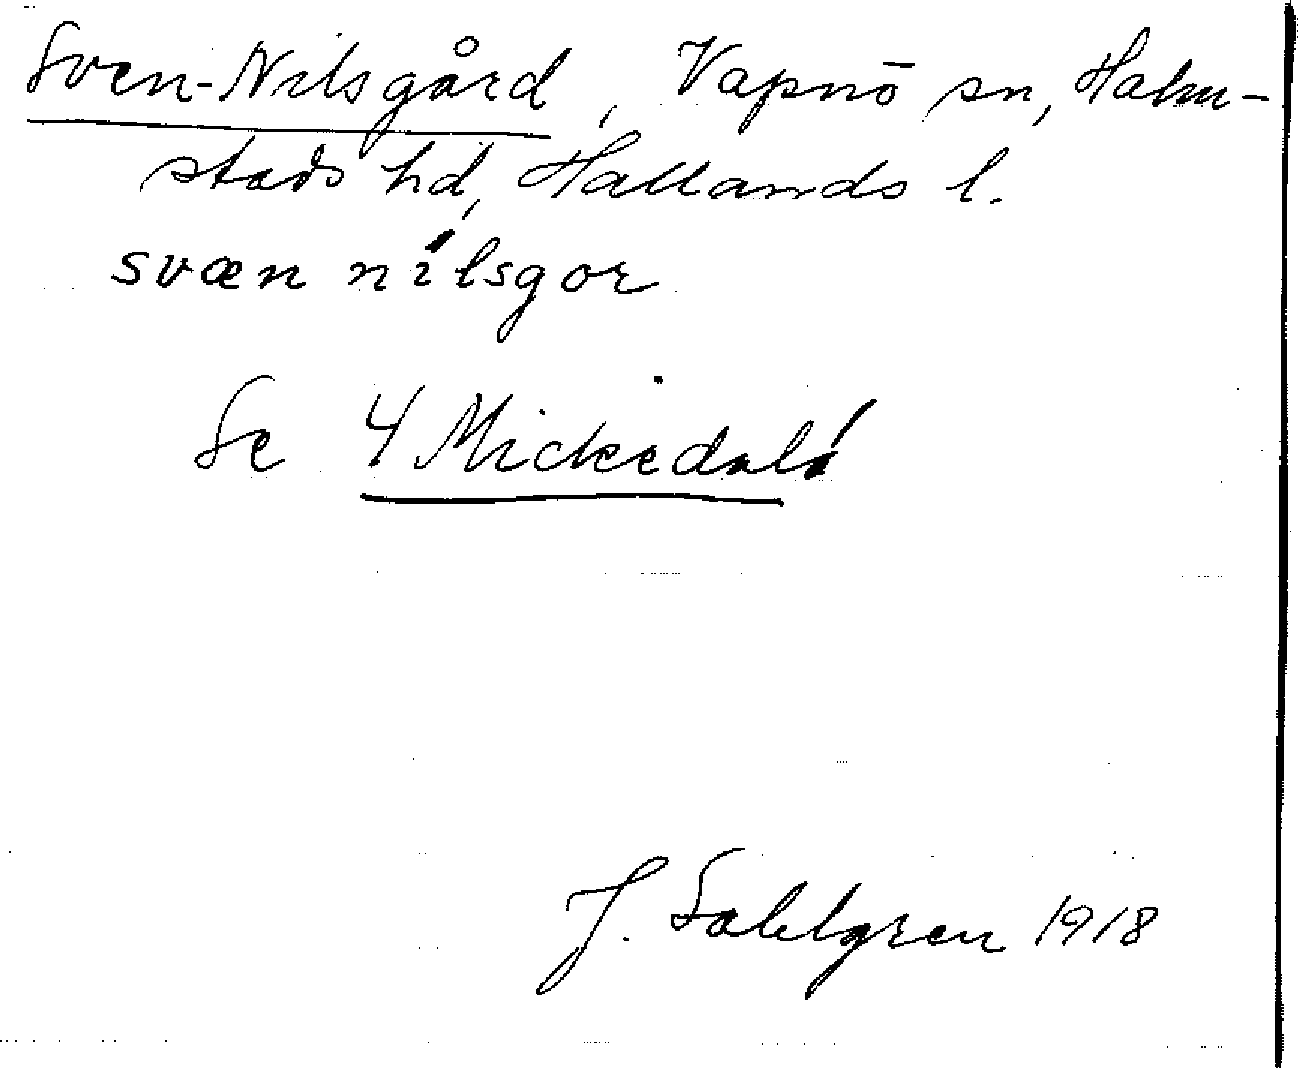 Sven-Nilsgård, Vapnö sn, Halm-
stads hd, Hallands l.
svæn nílsgor
Se 4 Mickedala
J. Sahlgren 1918